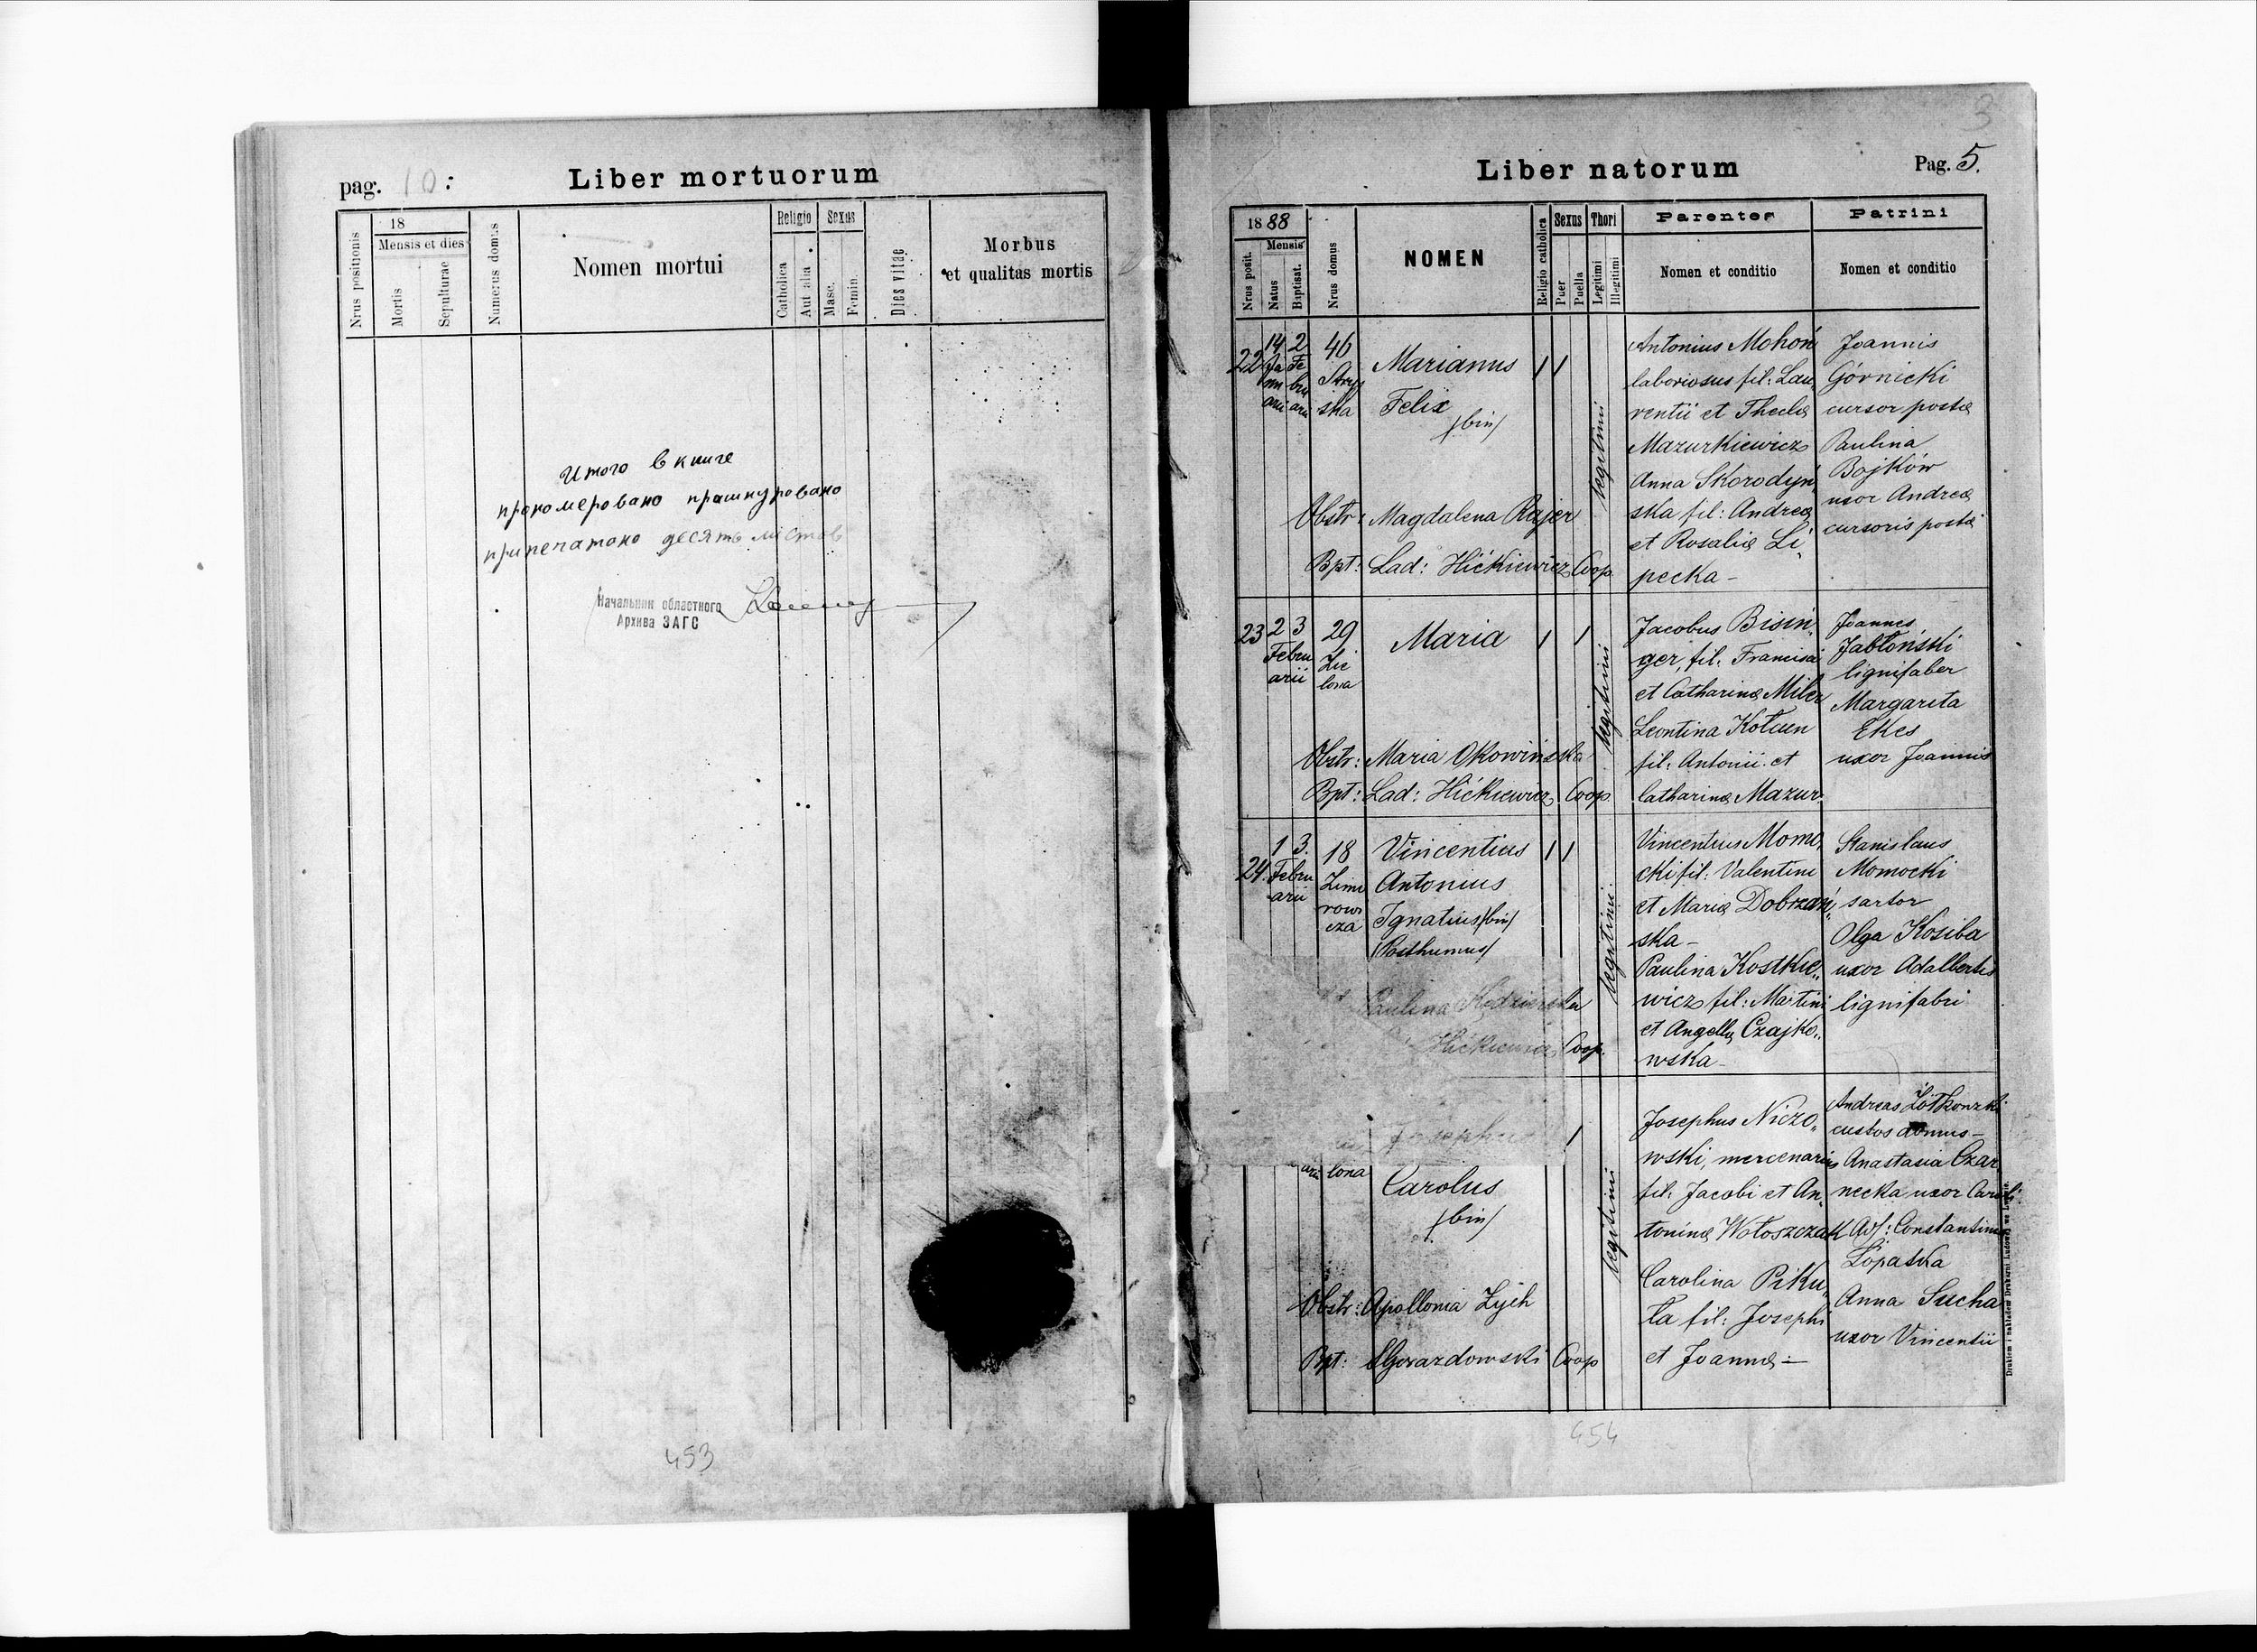 pag. 10:
Liber mortuorum
Nrus positionis
18
Mensis et dies
Mortis
Sepulturae
Numerus domus
Nomen mortui
Religio
Catholica
Aut alia
Sexus
Masc.
Femin.
Dies vitae
Morbus
et qualitas mortis
Итого в книге
пронумеровано прошнуровано
припечатано десять листов
Начальник областного
Архива ЗАГС
453
3
Liber natorum
Pag. 5.
1888
Nrus posit.
Mensis
Natus
Baptisat.
Nrus domus
NOMEN
Religio catholica
Sexus
Puer
Puella
Thori
Legitimi
Illegitimi
Parentes
Nomen et conditio
Patrini
Nomen et conditio
22
14 Januarii
2 Februarii
46
Stryska
Marianus
Felix
/bin/
legitimi
Obstr: Magdalena Rajer
Bpt: Lad: Hićkiewicz Coop.
Antonius Mohoń
laboriosus fil: Lau,
rentii et Theclæ
Mazurkiewicz
Anna Skorodyń,
ska fil: Andreæ
et Rosaliæ Li,
pecka -
Joannis
Górnicki
cursor postæ
Paulina
Bojków
uxor Andreæ
cursoris postæ
23
2 3
Febru
arii
29
Zie
lona
Maria
legitimi
Obstr: Maria Okowińska
Bpt: Lad: Hićkiewicz Coop.
Jacobus Bisin,
ger, fil: Francisci
et Catharinæ Miler
Leontina Kołcun
fil: Antonii et
Catharinæ Mazur
Joannes
Jabłoński
lignifaber
Margareta
Ekes
uxor Joannis
24.
1 3.
Febru
arii
18
Zimo
rowi
cza
Vincentius
Antonius
Ignatius /bin/
/Posthumus/
legitimi
Paulina Kędzierska
Hićkiewicz Coop.
Vincentius Momo,
cki fil: Valentini
et Mariæ Dobrzań,
ska -
Paulina Kostkie,,
wicz fil: Martini
et Angellæ Czajko,,
wska -
Stanislaus
Momocki
sartor
Olga Kosiba
uxor Adalberti
lignifabri
arii
lona
Josephus
Carolus
/bin/
legitimi
Obstr: Apollonia Zych
Bpt: SGorazdowski Coop
Josephus Niczo,,
wski, mercenarius
fil: Jacobi et An,
toninæ Wołoszczak
Carolina Piku,
ła fil: Josephi
et Joannæ -
Andreas
custos domus -
Anastasia Czar
necka uxor Caroli
Ass: Constantinus
Łopatka
Anna Sucha
uxor Vincentii
Drukiem i nakładem Drukarni Ludowej we Lwowie.
454